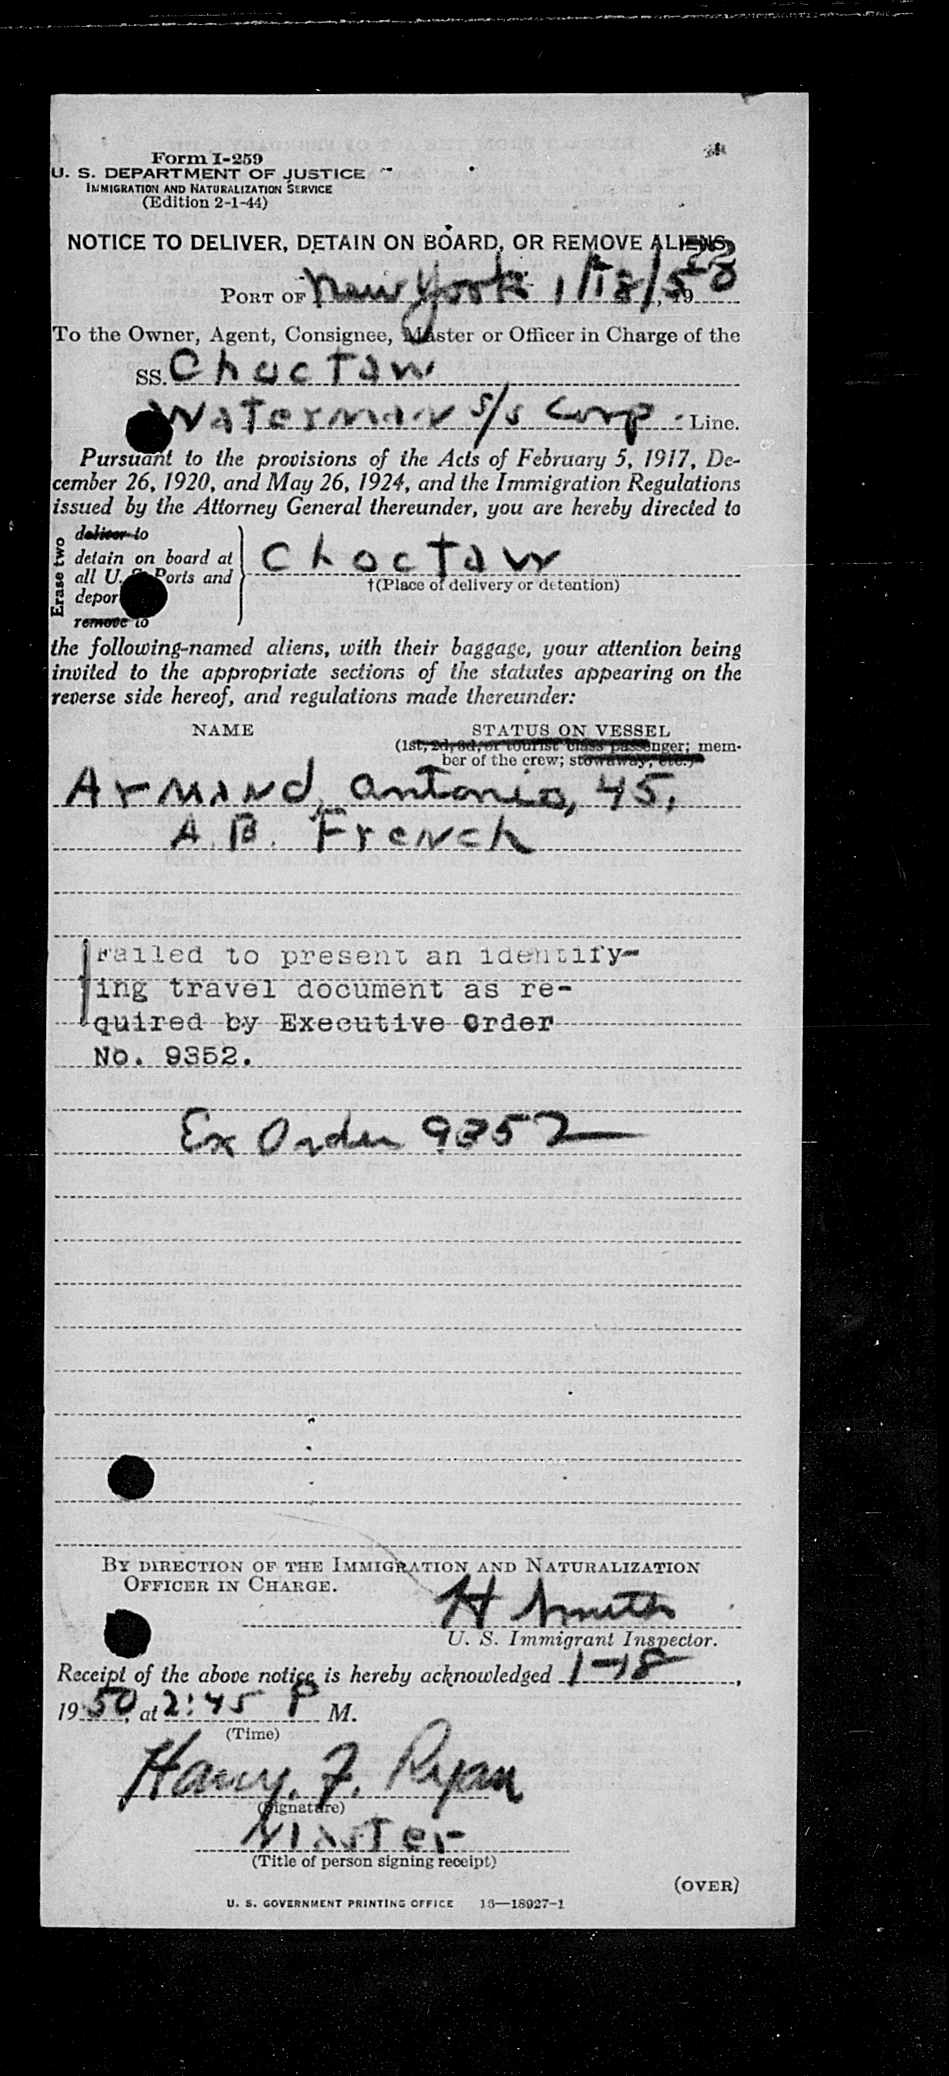 Form I-259
U. S. DEPARTMENT OF JUSTICE
IMMIGRATION AND NATURALIZATION SERVICE
(Edition 2-1-44)
NOTICE TO DELIVER, DETAIN ON BOARD, OR REMOVE ALIENS
PORT OF New York 1/18/50, 19
To the Owner, Agent, Consignee, Master or Officer in Charge of the
SS. Choctaw
Waterman S/S Corp. Line.
Pursuant to the provisions of the Acts of February 5, 1917, De-
cember 26, 1920, and May 26, 1924, and the Immigration Regulations
issued by the Attorney General thereunder, you are hereby directed to
Erase two
deliver to
detain on board at
all U. S. Ports and
depor
remove to
Choctaw
†(Place of delivery or detention)
the following-named aliens, with their baggage, your attention being
invited to the appropriate sections of the statutes appearing on the
reverse side hereof, and regulations made thereunder:
NAME STATUS ON VESSEL
(1st, 2d, 3d, or tourist class passenger; mem-
ber of the crew; stowaway, etc.)
Armand, Antonio, 45,
A.B. French
Failed to present an identify-
ing travel document as re-
quired by Executive Order
No. 9352.
Ex Order 9352
BY DIRECTION OF THE IMMIGRATION AND NATURALIZATION
OFFICER IN CHARGE.
H Smith
U. S. Immigrant Inspector.
Receipt of the above notice is hereby acknowledged 1-18,
19 50, at 2:45 P M.
(Time)
Harry. F. Ryan
(Signature)
Master
(Title of person signing receipt)
(OVER)
U. S. GOVERNMENT PRINTING OFFICE 16—18927-1